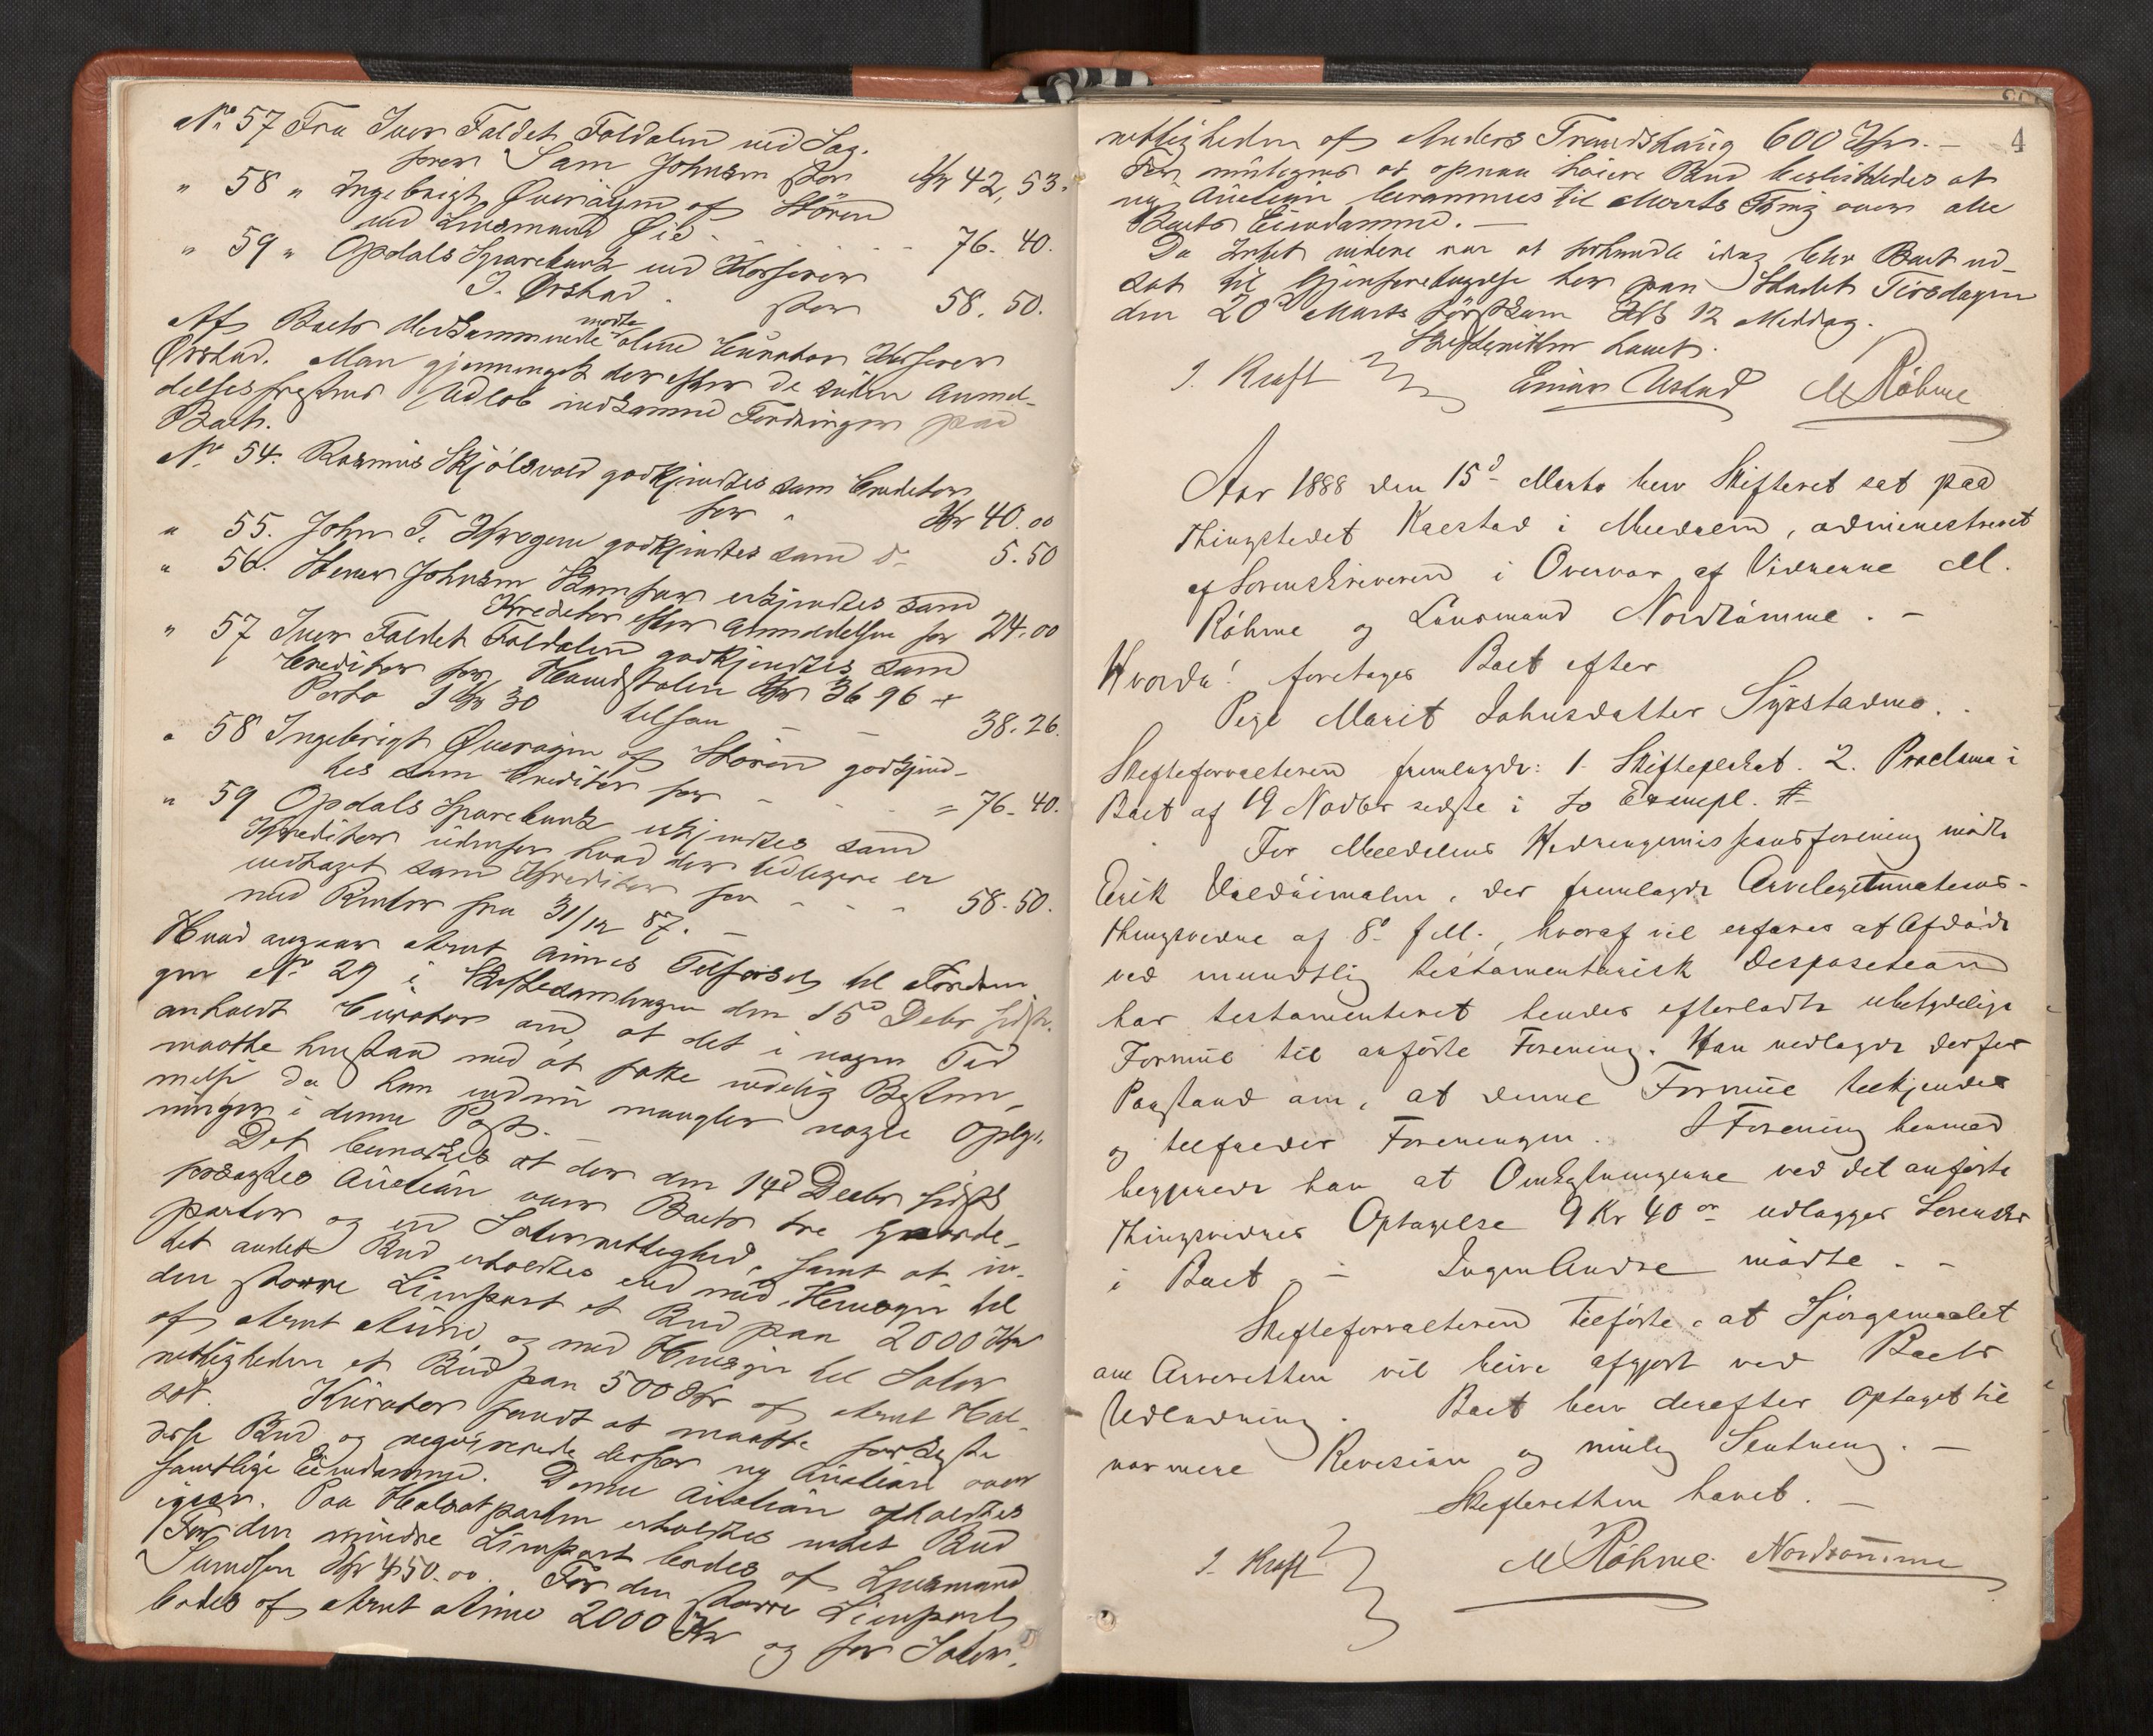 No 57 Fra Iver Faldet Foldalen ved Sag-
fører Sam Johnsen stor Kr 42,53.
" 58 " Ingebrigt Øveraasen af Støren
ved Lensmand Øie - - - 76-40.
" 59 " Opdals Sparebank ved Kasserer
J. Ørstad. stor 58.50.
Af Boets Vedkommende mødte alene Curator Kasserer
Ørstad. Man gjennemgik derefter de siden Anmel-
delsesfristens Udløb indkomne Fordringer paa
Boet.
No 54. Rasmus Skjølsvold godkjendtes som Creditor
for - Kr 40.00
" 55. John T. godkjendtes som do 5.50
" 56. Johnsen erkjendtes som
Kreditor efter Anmeldelsen for 24.00
" 57 Iver Faldet Foldalen godkjendtes som
Creditor for Hovedstolen Kr 36 96 +
Porto 1 Kr 30 tilsam - - 38.26.
" 58 Ingebrigt af Støren godkjend-
tes som Creditor for - - - = 76-40.
" 59 Opdals Sparebank erkjendtes som
Kreditor udenfor hvad der tidligere er
vedtaget som Kreditor for - - - 58.50.
med Renter fra 31/12 87. -
Hvad angaar Arnt Aunes Tilførsel til Fordrin
gen No 29 i Skiftesamlingen den 15d Debr sidstl.
anholdt Curator om, at det i nogen Tid
maatte henstaa med at fatte endelig Bestem-
melse da han endnu mangler nogle Oplys-
ninger i denne Post. -
Det bemærkes at der den 14d Decbr sidstl
forsøgtes Auction over Boets tre Gaarde-
parter og en Sæterrettighed, samt at in-
tet andet Bud erholdtes end med Hensyn til
den større Limpart et Bud paa 2000 Kr
af Arnt Aune, og med Hensyn til Sæter
rettigheden et Bud paa 500 Kr af Arnt Hal-
set. Kurator fandt at maatte forkaste
disse Bud og requirerede derfor ny Auction over
samtlige Eiendomme. Denne Auction afholdtes
igaar. Paa Halsetparten erholdtes intet Bud
For den mindre Limpart bødes af Lensmand
Sundsen Kr 450.00. For den større Limpart
bødes af Arnt Aune 2000 Kr og for Sæter-
4
rettigheden af Anders Trondshaug 600 Kr. -
For muligens at opnaa høiere Bud besluttedes at
ny Auction berammes til Marts Thing over alle
Boets Eiendomme. -
Da Intet videre var at forhandle idag blev Boet ud-
sat til Gjenforetagelse her paa Stedet Tirsdagen
den 20d Marts førstkom Kl 12 Middag.
Skifteretten hævet.
J. Kraft Einar Ustad M Röhme
Aar 1888 den 15d Marts blev Skifteret sat paa
Thingstedet Kaestad i Meldalen, administreret
af Sorenskriveren i Overvær af Vidnerne M.
Röhme og Lensmand Nordtømme. -
Hvorda! foretages Boet efter
Pige Marit Johnsdatter Syrstadmo. .
Skifteforvalteren fremlagde: 1. Skifteplakat. 2. Proclama i
Boet af 19 Novbr sidste i to Exempl. #
For Meldalens Hedningemissionsforening mødte
Erik , der fremlagde Arvelegitimations-
thingsvidne af 8d f. M., hvoraf vil erfares at Afdøde
ved mundtlig testamentarisk Disposition
har testamenteret hendes efterladte ubetydelige
Formue til anførte Forening. Han nedlagde derfor
Paastand om, at denne Formue tilkjendes
og tilfalder Foreningen. I Forening hermed
begjærede han at Omkostningerne ved det anførte
Thingsvidnes Optagelse 9 Kr 40 ør udlægges Lorenskr
i Boet. - Ingen Andre mødte. -
Skifteforvalteren tilførte, at Spørgsmaalet
om Arveretten vil blive afgjort ved Boets
Udlodning. Boet blev derefter optaget til
nærmere Revision og mulig Slutning. -
Skifteretten hævet. -
J. Kraft M Röhme. Nordtømme